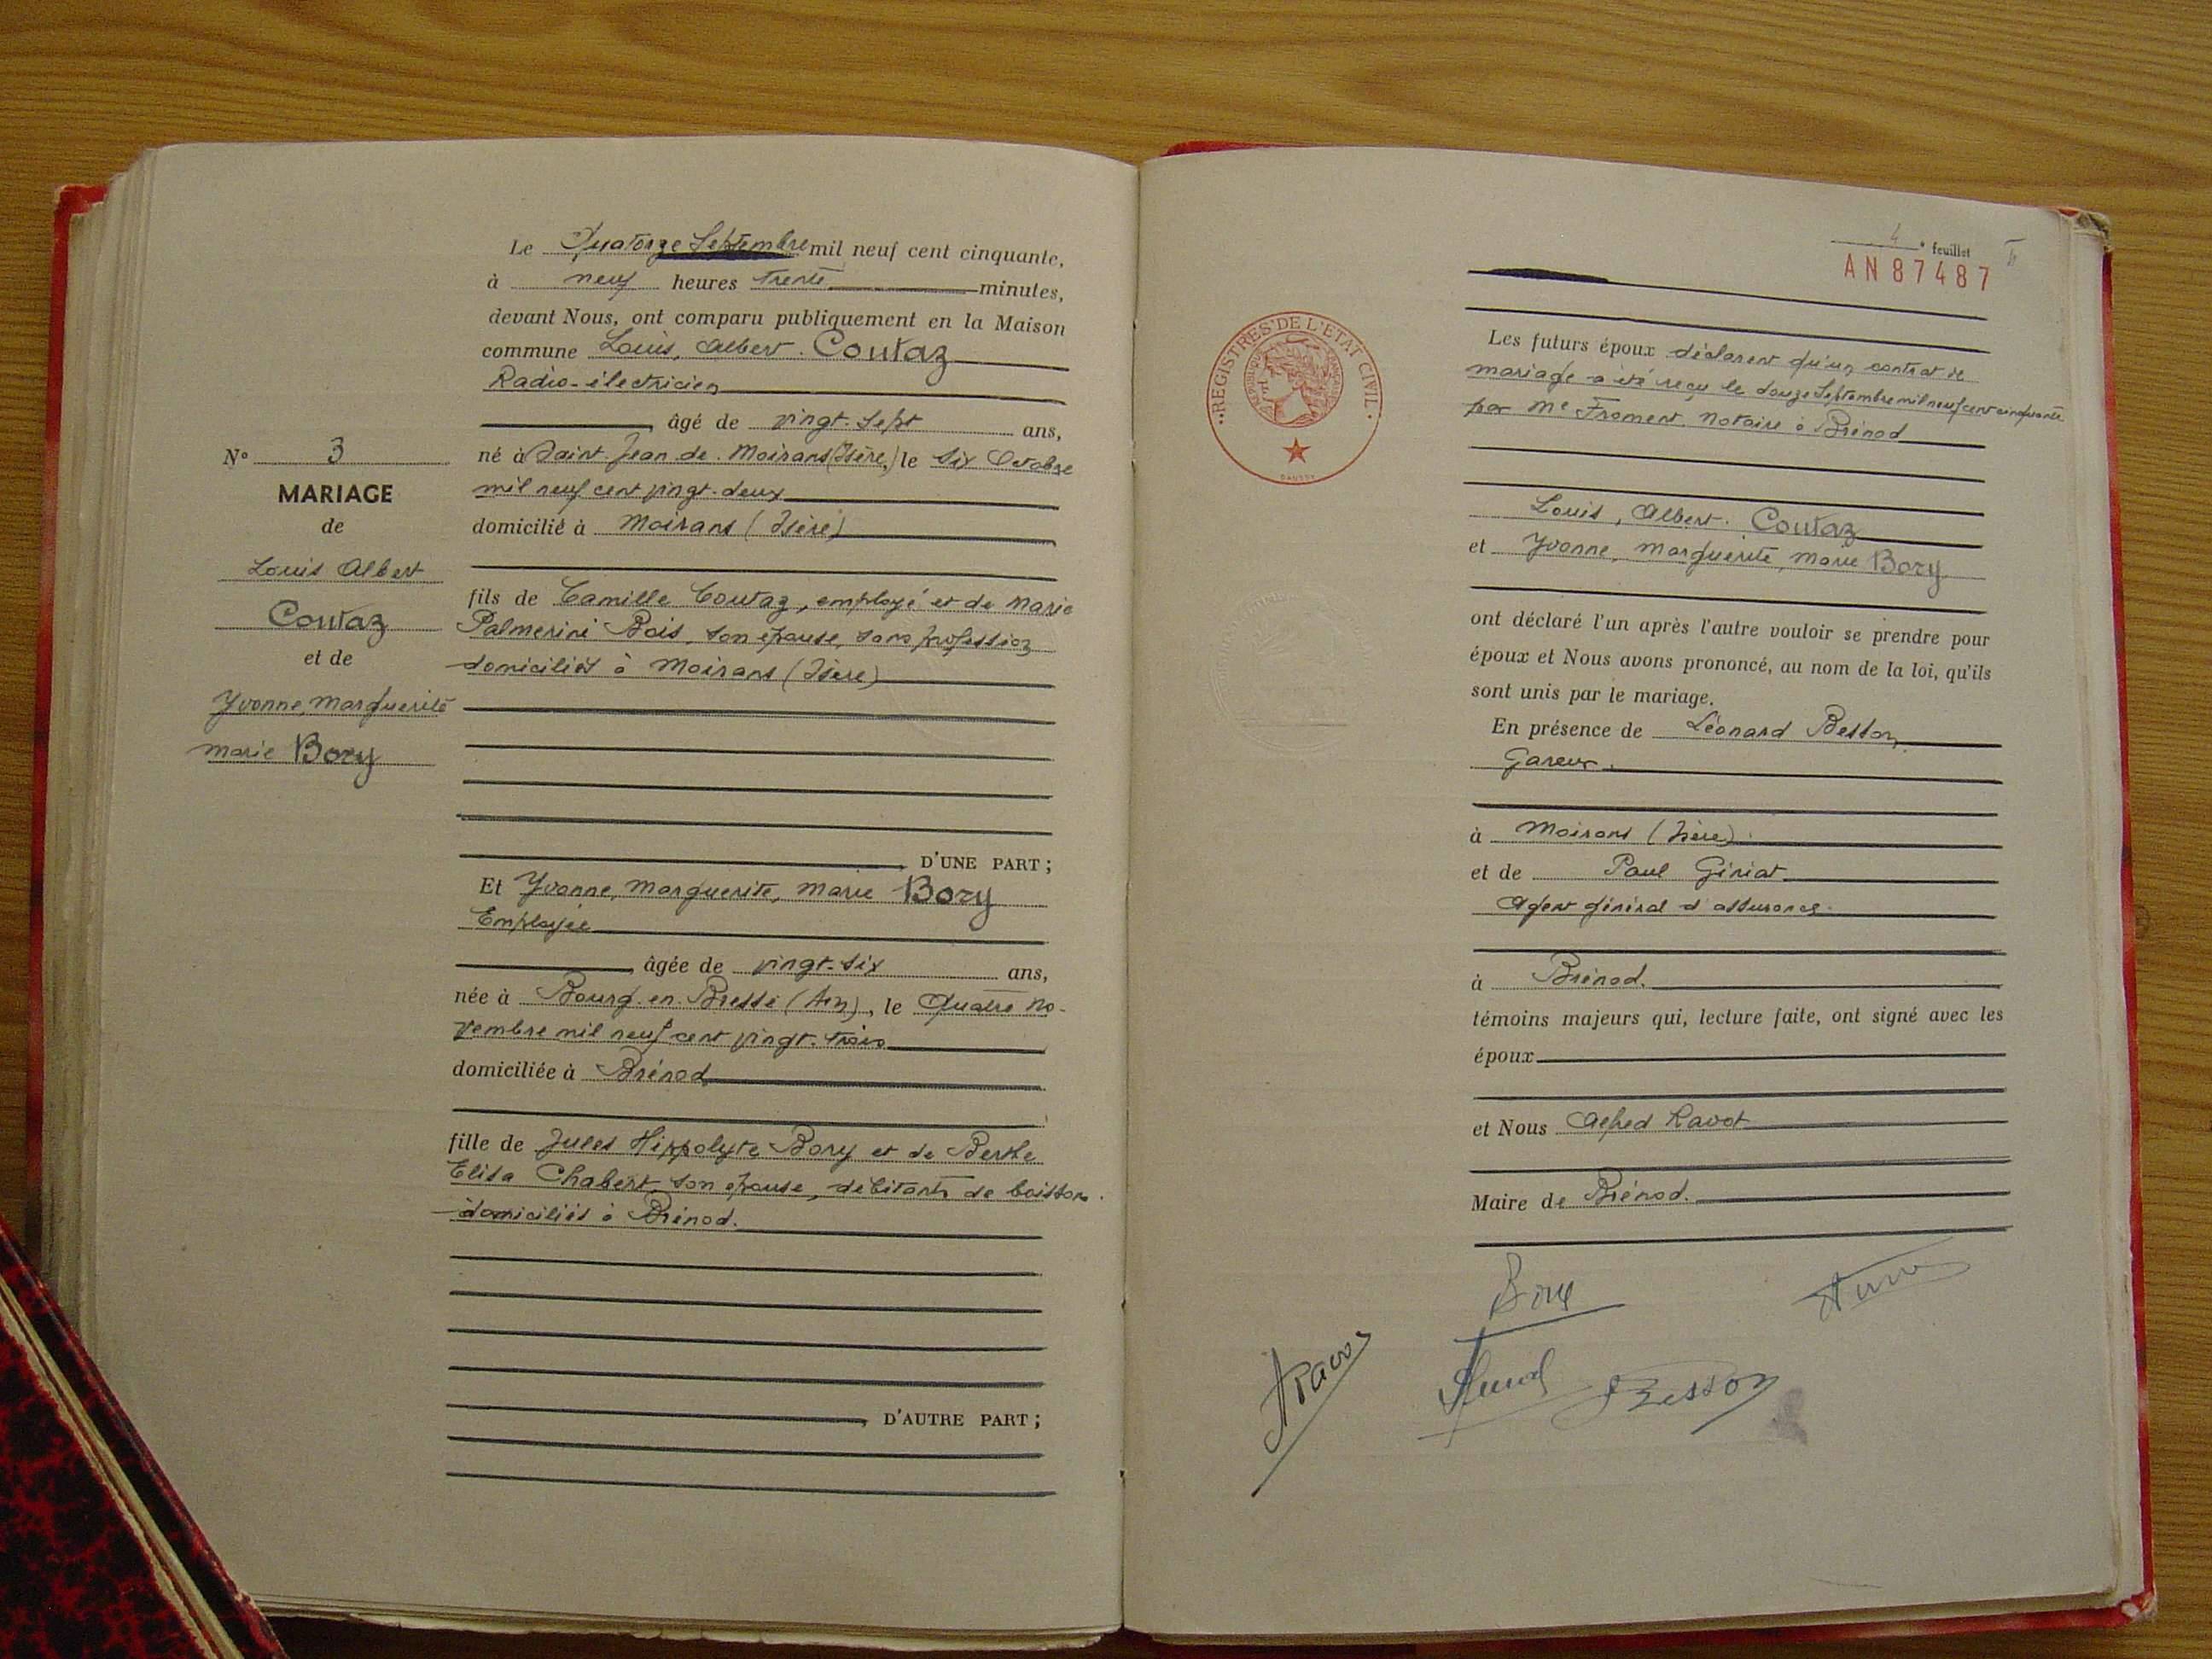 Le Quatorze Septembre mil neuf cent cinquante,
à neuf heures trente minutes,
devant Nous, ont comparu publiquement en la Maison
commune Louis, Albert. Coutaz
Radio-électricien
âgé de vingt-sept ans,
né à Saint-Jean de Moirans (Isère,) le six Octobre
mil neuf cent vingt-deux
domicilié à Moirans (Isère)
fils de Camille Coutaz, employé et de Marie
Palmerini Bois, son épouse, sans profession
domiciliés à Moirans (Isère)
D'UNE PART ;
Et Yvonne, Marguerite, Marie Bory
Employée
âgée de vingt-six ans,
née à Bourg-en-Bresse (Ain), le quatre no-
vembre mil neuf cent vingt-trois
domiciliée à Brénod
fille de Jules Hippolyte Bory et de Berthe
Elisa Chabert, son épouse, débitants de boissons.
domiciliés à Brénod.
D'AUTRE PART ;
N° 3
MARIAGE
de
Louis Albert
Coutaz
et de
Yvonne, Marguerite
Marie Bory
4e feuillet
AN 87487
REGISTRES DE L'ETAT CIVIL
Les futurs époux déclarent qu'un contrat de
mariage a été reçu le douze Septembre mil neuf cent cinquante
par Me Froment, Notaire à Brénod
Louis, Albert. Coutaz
et Yvonne, Marguerite, Marie Bory
ont déclaré l'un après l'autre vouloir se prendre pour
époux et Nous avons prononcé, au nom de la loi, qu'ils
sont unis par le mariage.
En présence de Léonard Besson,
Gareur.
à Moirans (Isère).
et de Paul Giriat
Agent général d'assurances.
à Brénod.
témoins majeurs qui, lecture faite, ont signé avec les
époux
et Nous Alfred Ravot
Maire de Brénod.
Bory
ARavot
Besson